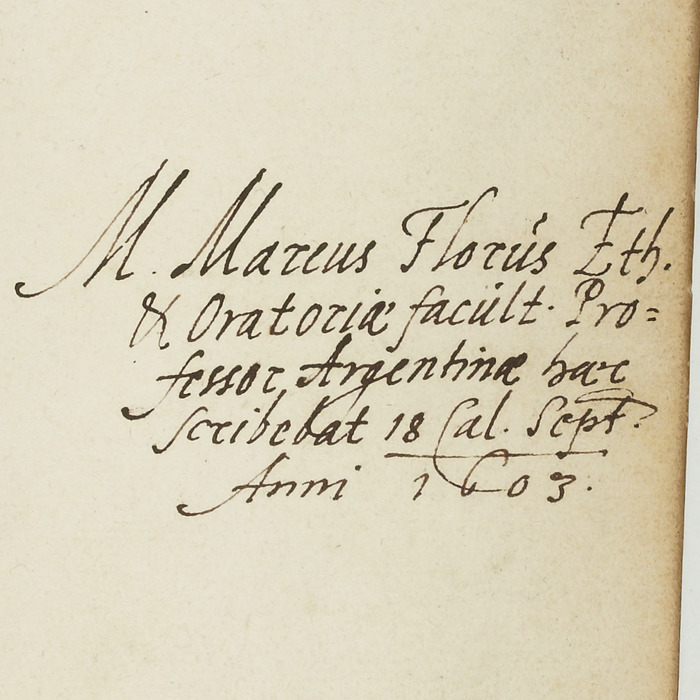 M. Marcus Florus Eth.
& Oratoriæ facult. Pro=
fessor Argentinæ hæc
scribebat 18 Cal. Sept.
Anni 1603.